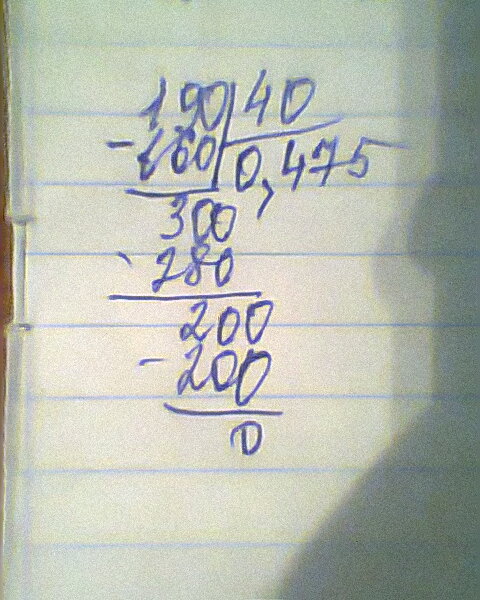 190 40
- 160 0,475
300
- 280
200
- 200
0